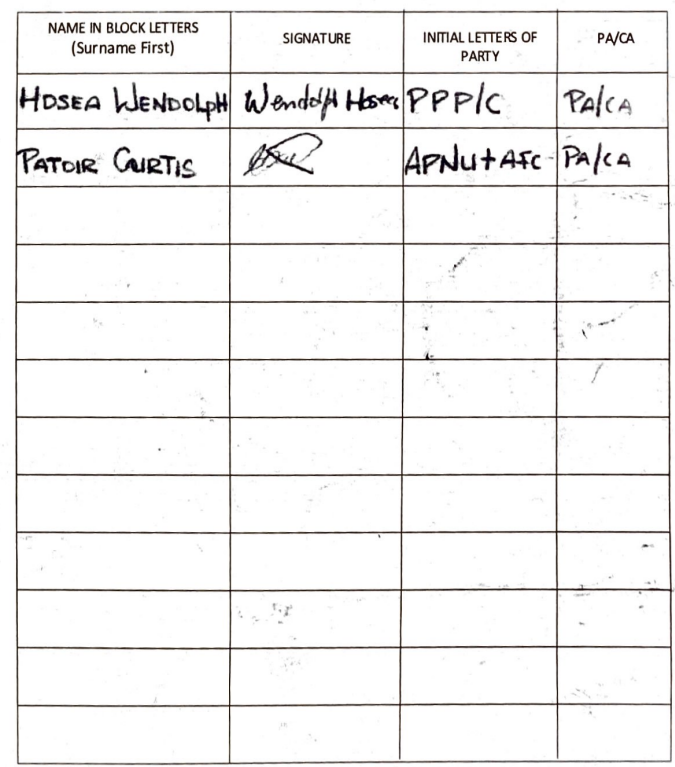 NAME IN BLOCK LETTERS
(Surname First)
SIGNATURE
INITIAL LETTERS OF
PARTY
PA/CA
HOSEA WENDOLPH Wendolph Hosea PPP/C PA/CA
PATOIR CURTIS APNU+AFC PA/CA